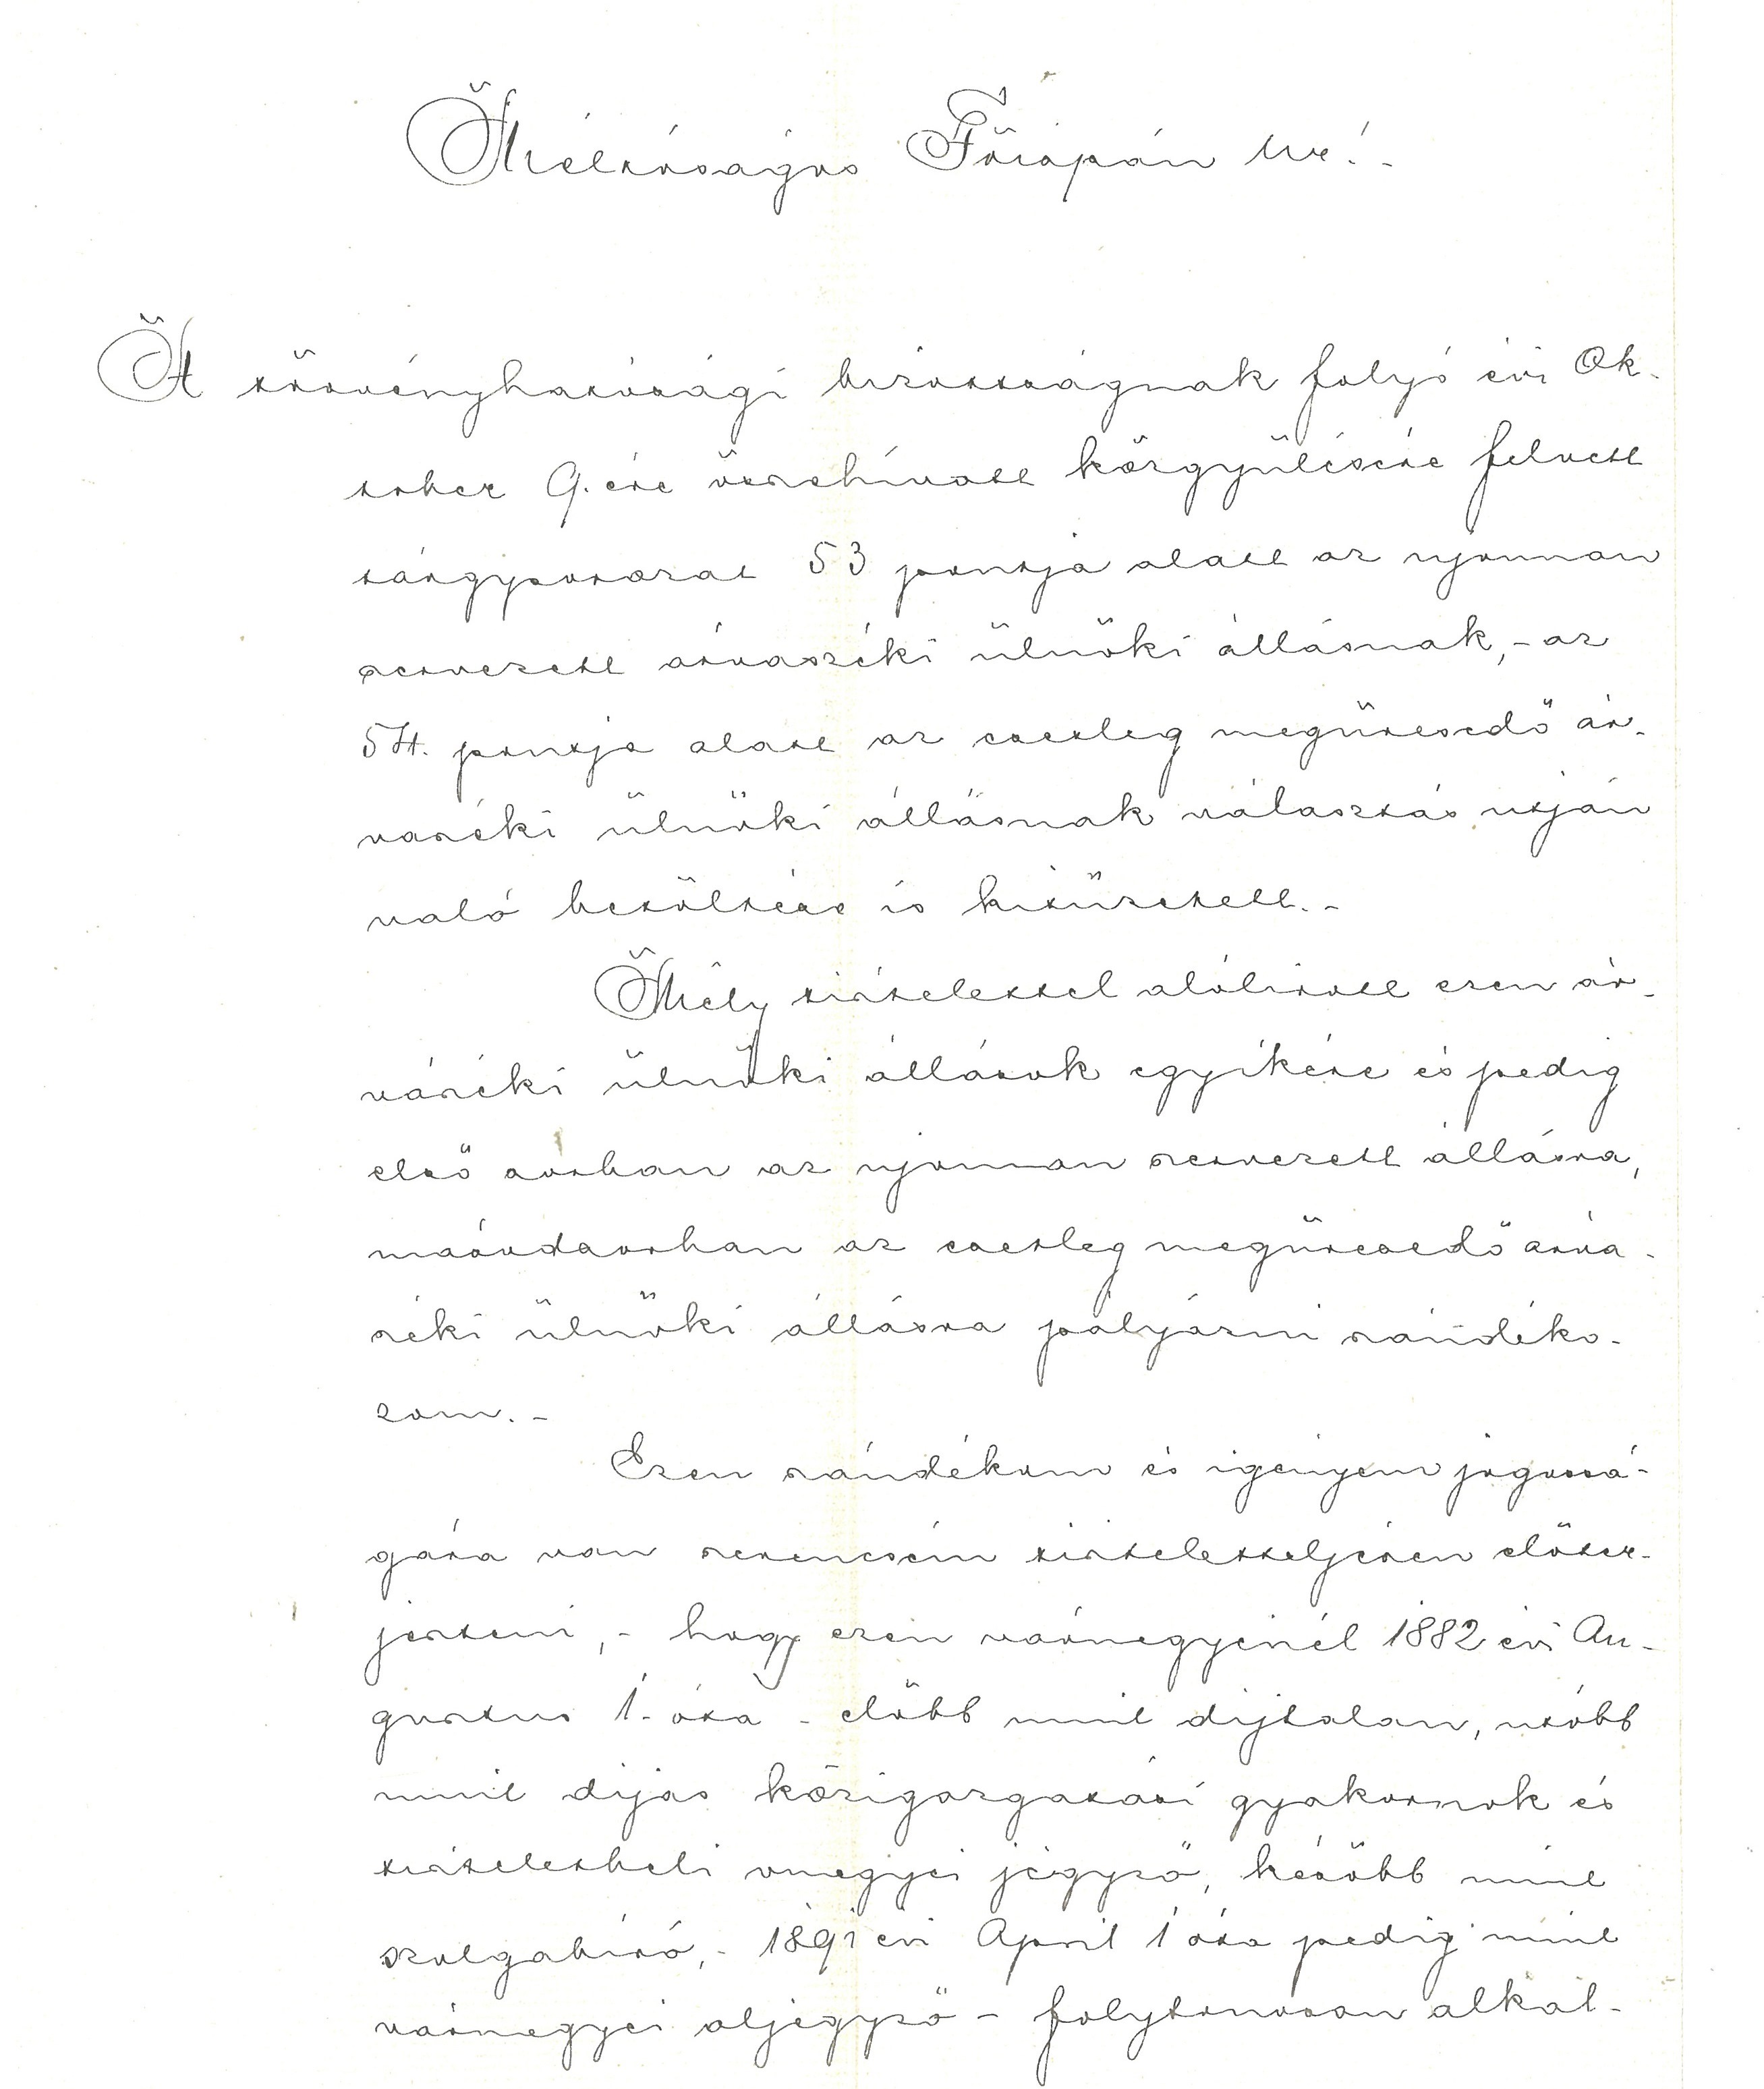 Méltóságos Főispán Ur!-
A törvényhatósági bizottságnak folyó évi Ok-
tober 9. ére összehívott közgyülésére felvett
tárgysorozat 53 pontja alatt az ujonnan
szervezett árvaszéki ülnöki állásnak, - az
54. pontja alatt az esetleg megüresedő ár-
vaszéki ülnöki állásnak választás utján
való betöltése is kitüzetett.-
Mély tisztelettel alólirott ezen ár-
vaszéki ülnöki állások egyikére és pedig
első sorban az ujonnan szervezett állásra,
másodsorban az esetleg megüresedő árva-
széki ülnöki állásra pályázni szándéko-
zom.-
Ezen szándékom és igényem jogossá-
gára van szerencsém tiszteletteljesen előter-
jeszteni, - hogy ezen vármegyénél 1882 évi Au-
gusztus 1. óta - előbb mint dijtalan, utóbb
mint dijas közigazgatási gyakornok és
tiszteletbeli vmegyei jegyző, később mint
szolgabiró, - 1891 évi April 1 óta pedig mint
vármegyei aljegyző - folytonosan alkal-